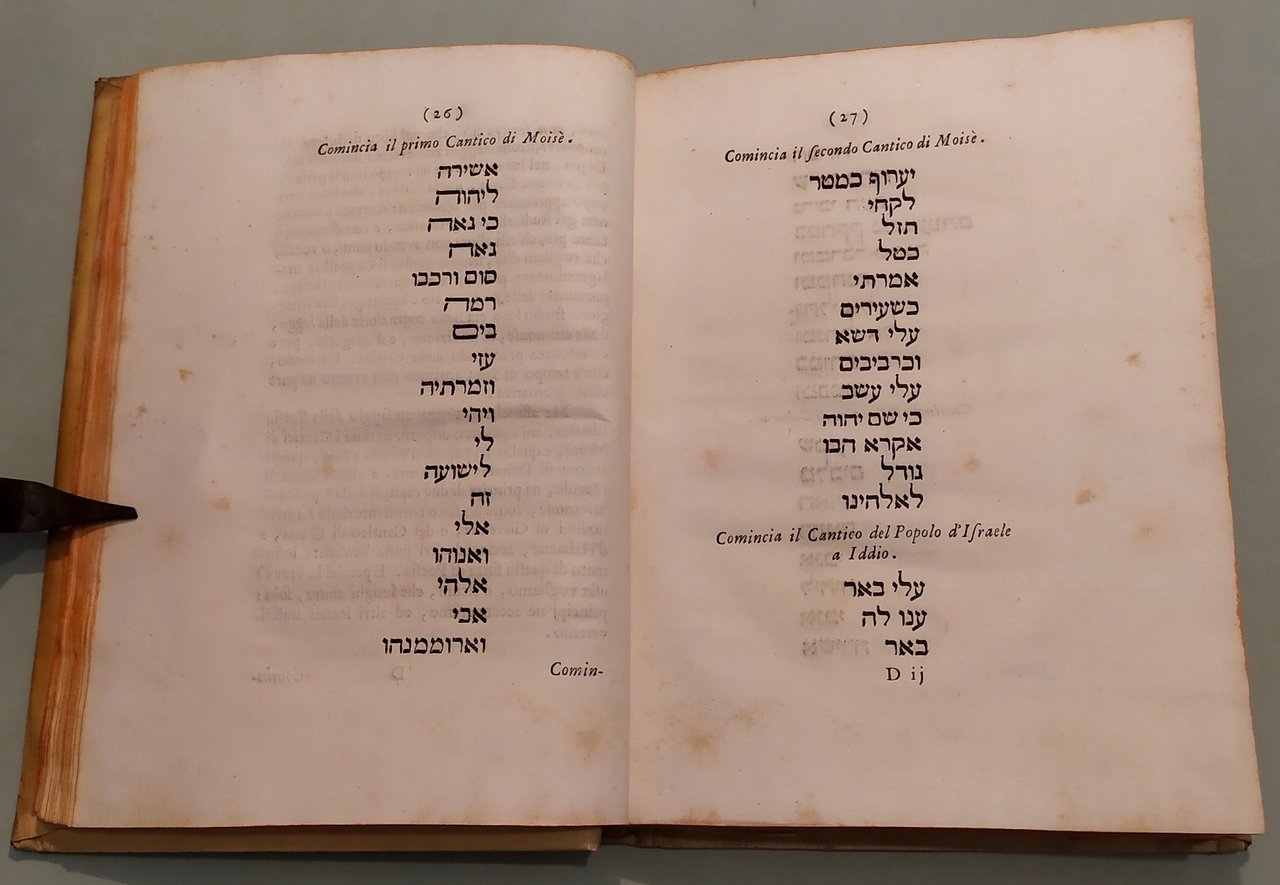 (26)
Comincia il primo Cantico di Moisè.
אשירה
ליהוה
כי גאה
גאה
סוס ורכבו
רמה
בים
עזי
וזמרתיה
ויהי
לי
לישועה
זה
אלי
ואנוהו
אלהי
אבי
וארוממנהו
Comin-
(27)
Comincia il ſecondo Cantico di Moisè.
יערוף כמטר
לקחי
תזל
כטל
אמרתי
כשעירים
עלי דשא
וכרביבים
עלי עשב
כי שם יהוה
אקרא הבו
גודל
לאלהינו
Comincia il Cantico del Popolo d'Iſraele
a Iddio.
עלי באר
ענו לה
באר
D ij